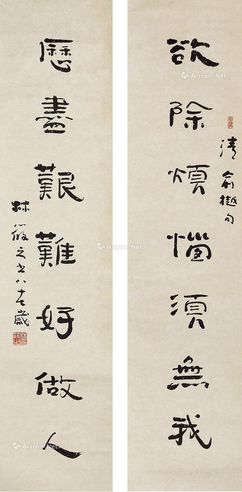 欲除煩惱須無我
清俞樾句
歷盡艱難好做人
林筱之書八十七歲